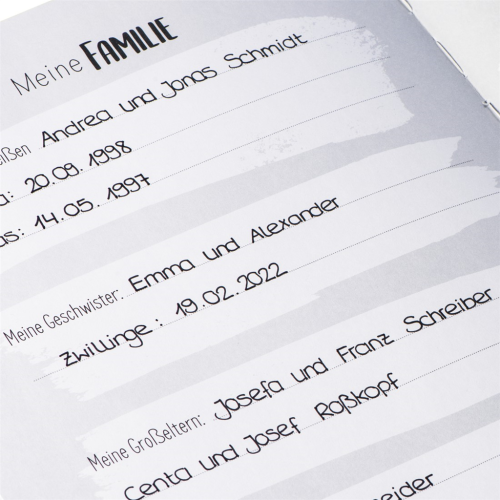 Meine FAMILIE
ißen Andrea und Jonas Schmidt
a: 20.09.1998
as: 14.05.1997
Meine Geschwister: Emma und Alexander
Zwillinge: 19.02.2022
Meine Großeltern: Josefa und Franz Schreiber
Centa und Josef Roßkopf
eider